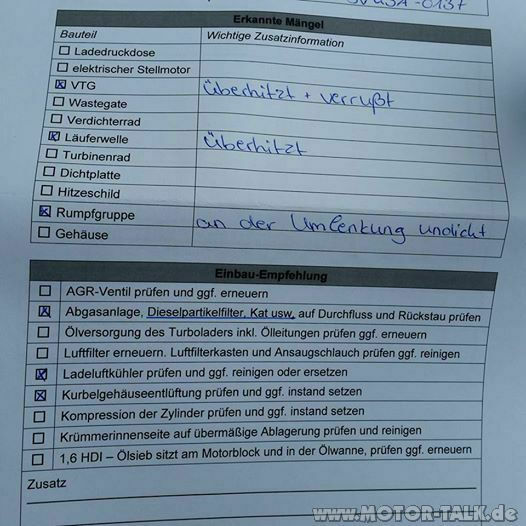 Erkannte Mängel
Bauteil Wichtige Zusatzinformation
Ladedruckdose
elektrischer Stellmotor
VTG überhitzt + verrußt
Wastegate
Verdichterrad
Läuferwelle überhitzt
Turbinenrad
Dichtplatte
Hitzeschild
Rumpfgruppe an der Umlenkung undicht
Gehäuse
Einbau-Empfehlung
AGR-Ventil prüfen und ggf. erneuern
Abgasanlage, Dieselpartikelfilter, Kat usw. auf Durchfluss und Rückstau prüfen
Ölversorgung des Turboladers inkl. Ölleitungen prüfen ggf. erneuern
Luftfilter erneuern. Luftfilterkasten und Ansaugschlauch prüfen ggf. reinigen
Ladeluftkühler prüfen und ggf. reinigen oder ersetzen
Kurbelgehäuseentlüftung prüfen und ggf. instand setzen
Kompression der Zylinder prüfen und ggf. instand setzen
Krümmerinnenseite auf übermäßige Ablagerung prüfen und reinigen
1,6 HDI – Ölsieb sitzt am Motorblock und in der Ölwanne, prüfen ggf. erneuern
Zusatz
www.MOTOR-TALK.de